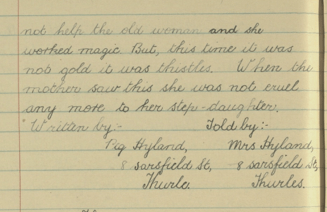 not help the old woman and she
worked magic. But, this time it was
not gold it was thistles. When the
mother saw this she was not cruel
any more to her step-daughter.
Written by:- Told by:-
Hyland, Mrs Hyland,
8 Sarsfield St, 8 Sarsfield St,
Thurles Thurles.